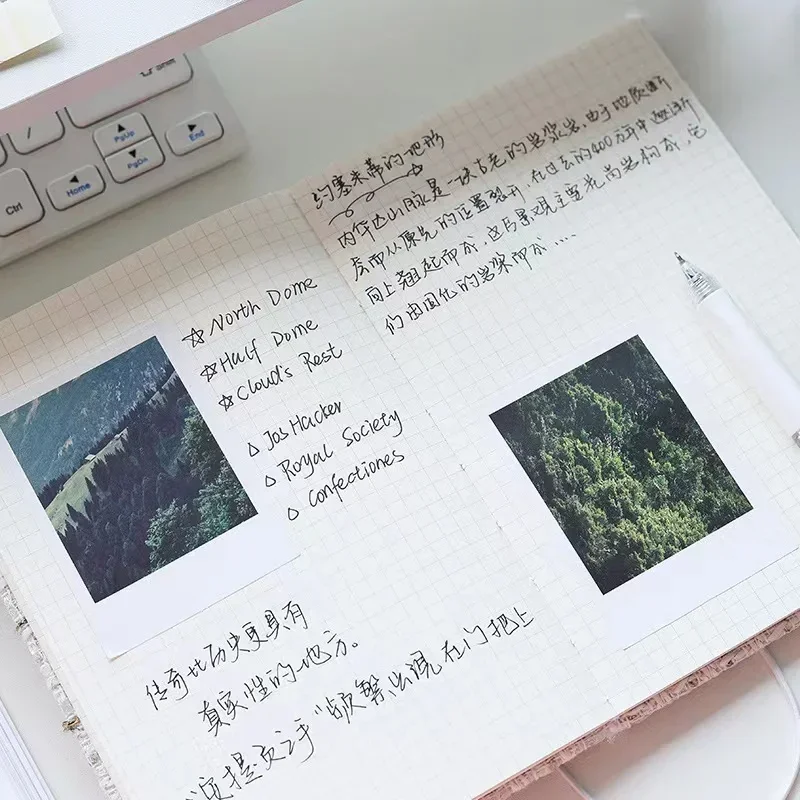 PgUp
PgDn
End
Home
Ctrl
☆ North Dome
☆ Half Dome
☆ Cloud's Rest
△ Jos Hacker
△ Royal Society
△ Confectiones
传奇比历史更具有
真实性的地方。
频繁出现在门把上
约塞米蒂的地形
内华达山脉是一块古老的岩浆岩,由于地质断
层而从原先的位置裂开,在过去的400万年中逐渐
向上翘起而成,这片景观主要花岗岩构成,它
们由固化的岩浆而成....